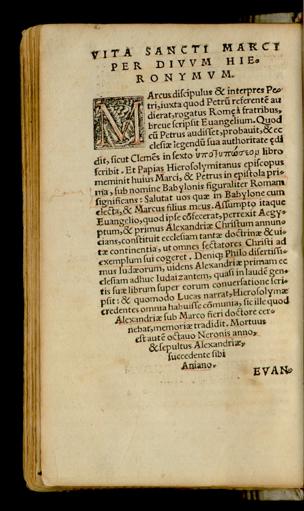 VITA SANCTI MARCI
PER DIVVM HIE-
RONYMVM.
MArcus discipulus & interpres Pe-
tri, iuxta quod Petrũ referentẽ au
dierat, rogatus Romę à fratribus,
breue scripsit Euangelium. Quod
cũ Petrus audisset, probauit, & ec
clesiæ legendũ sua authoritate ędi
dit, sicut Clemẽs in sexto ὑποτυπώσεων libro
scribit. Et Papias Hierosolymitanus episcopus
meminit huius Marci, & Petrus in epistola pri
ma, sub nomine Babylonis figuraliter Romam
significans: Salutat uos quæ in Babylone cum
electa, & Marcus filius meus. Assumpto itaque
Euangelio, quod ipse cõfecerat, perrexit Aegy-
ptum, & primus Alexandriæ Christum annun-
cians, constituit ecclesiam tantæ doctrinæ & ui-
tæ continentiæ, ut omnes sectatores Christi ad
exemplum sui cogeret. Deniq; Philo disertissi-
mus Iudæorum, uidens Alexandriæ primam ec
clesiam adhuc Iudaizantem, quasi in laudẽ gen-
tis suæ librum super eorum conuersatione scri-
psit: & quomodo Lucas narrat, Hierosolymæ
credentes omnia habuisse cõmunia, sic ille quod
Alexandriæ sub Marco fieri doctore cer-
nebat, memoriæ tradidit. Mortuus
est autẽ octauo Neronis anno,
& sepultus Alexandriæ,
succedente sibi
Aniano.
EVAN-